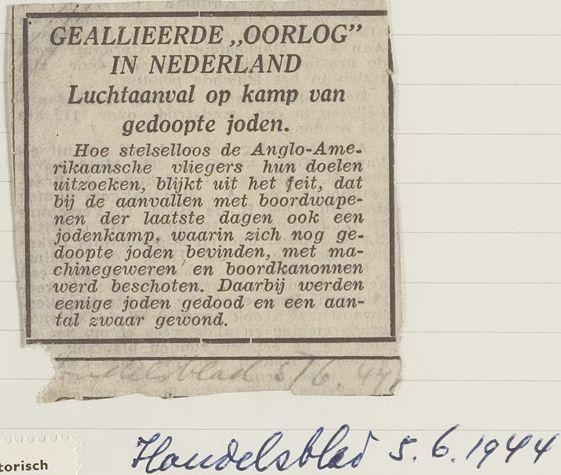 GEALLIEERDE „OORLOG”
IN NEDERLAND
Luchtaanval op kamp van
gedoopte joden.
Hoe stelselloos de Anglo-Ame-
rikaansche vliegers hun doelen
uitzoeken, blijkt uit het feit, dat
bij de aanvallen met boordwape-
nen der laatste dagen ook een
jodenkamp, waarin zich nog ge-
doopte joden bevinden, met ma-
chinegeweren en boordkanonnen
werd beschoten. Daarbij werden
eenige joden gedood en een aan-
tal zwaar gewond.
Handelsblad 5/6.44
Handelsblad 5.6.1944
torisch